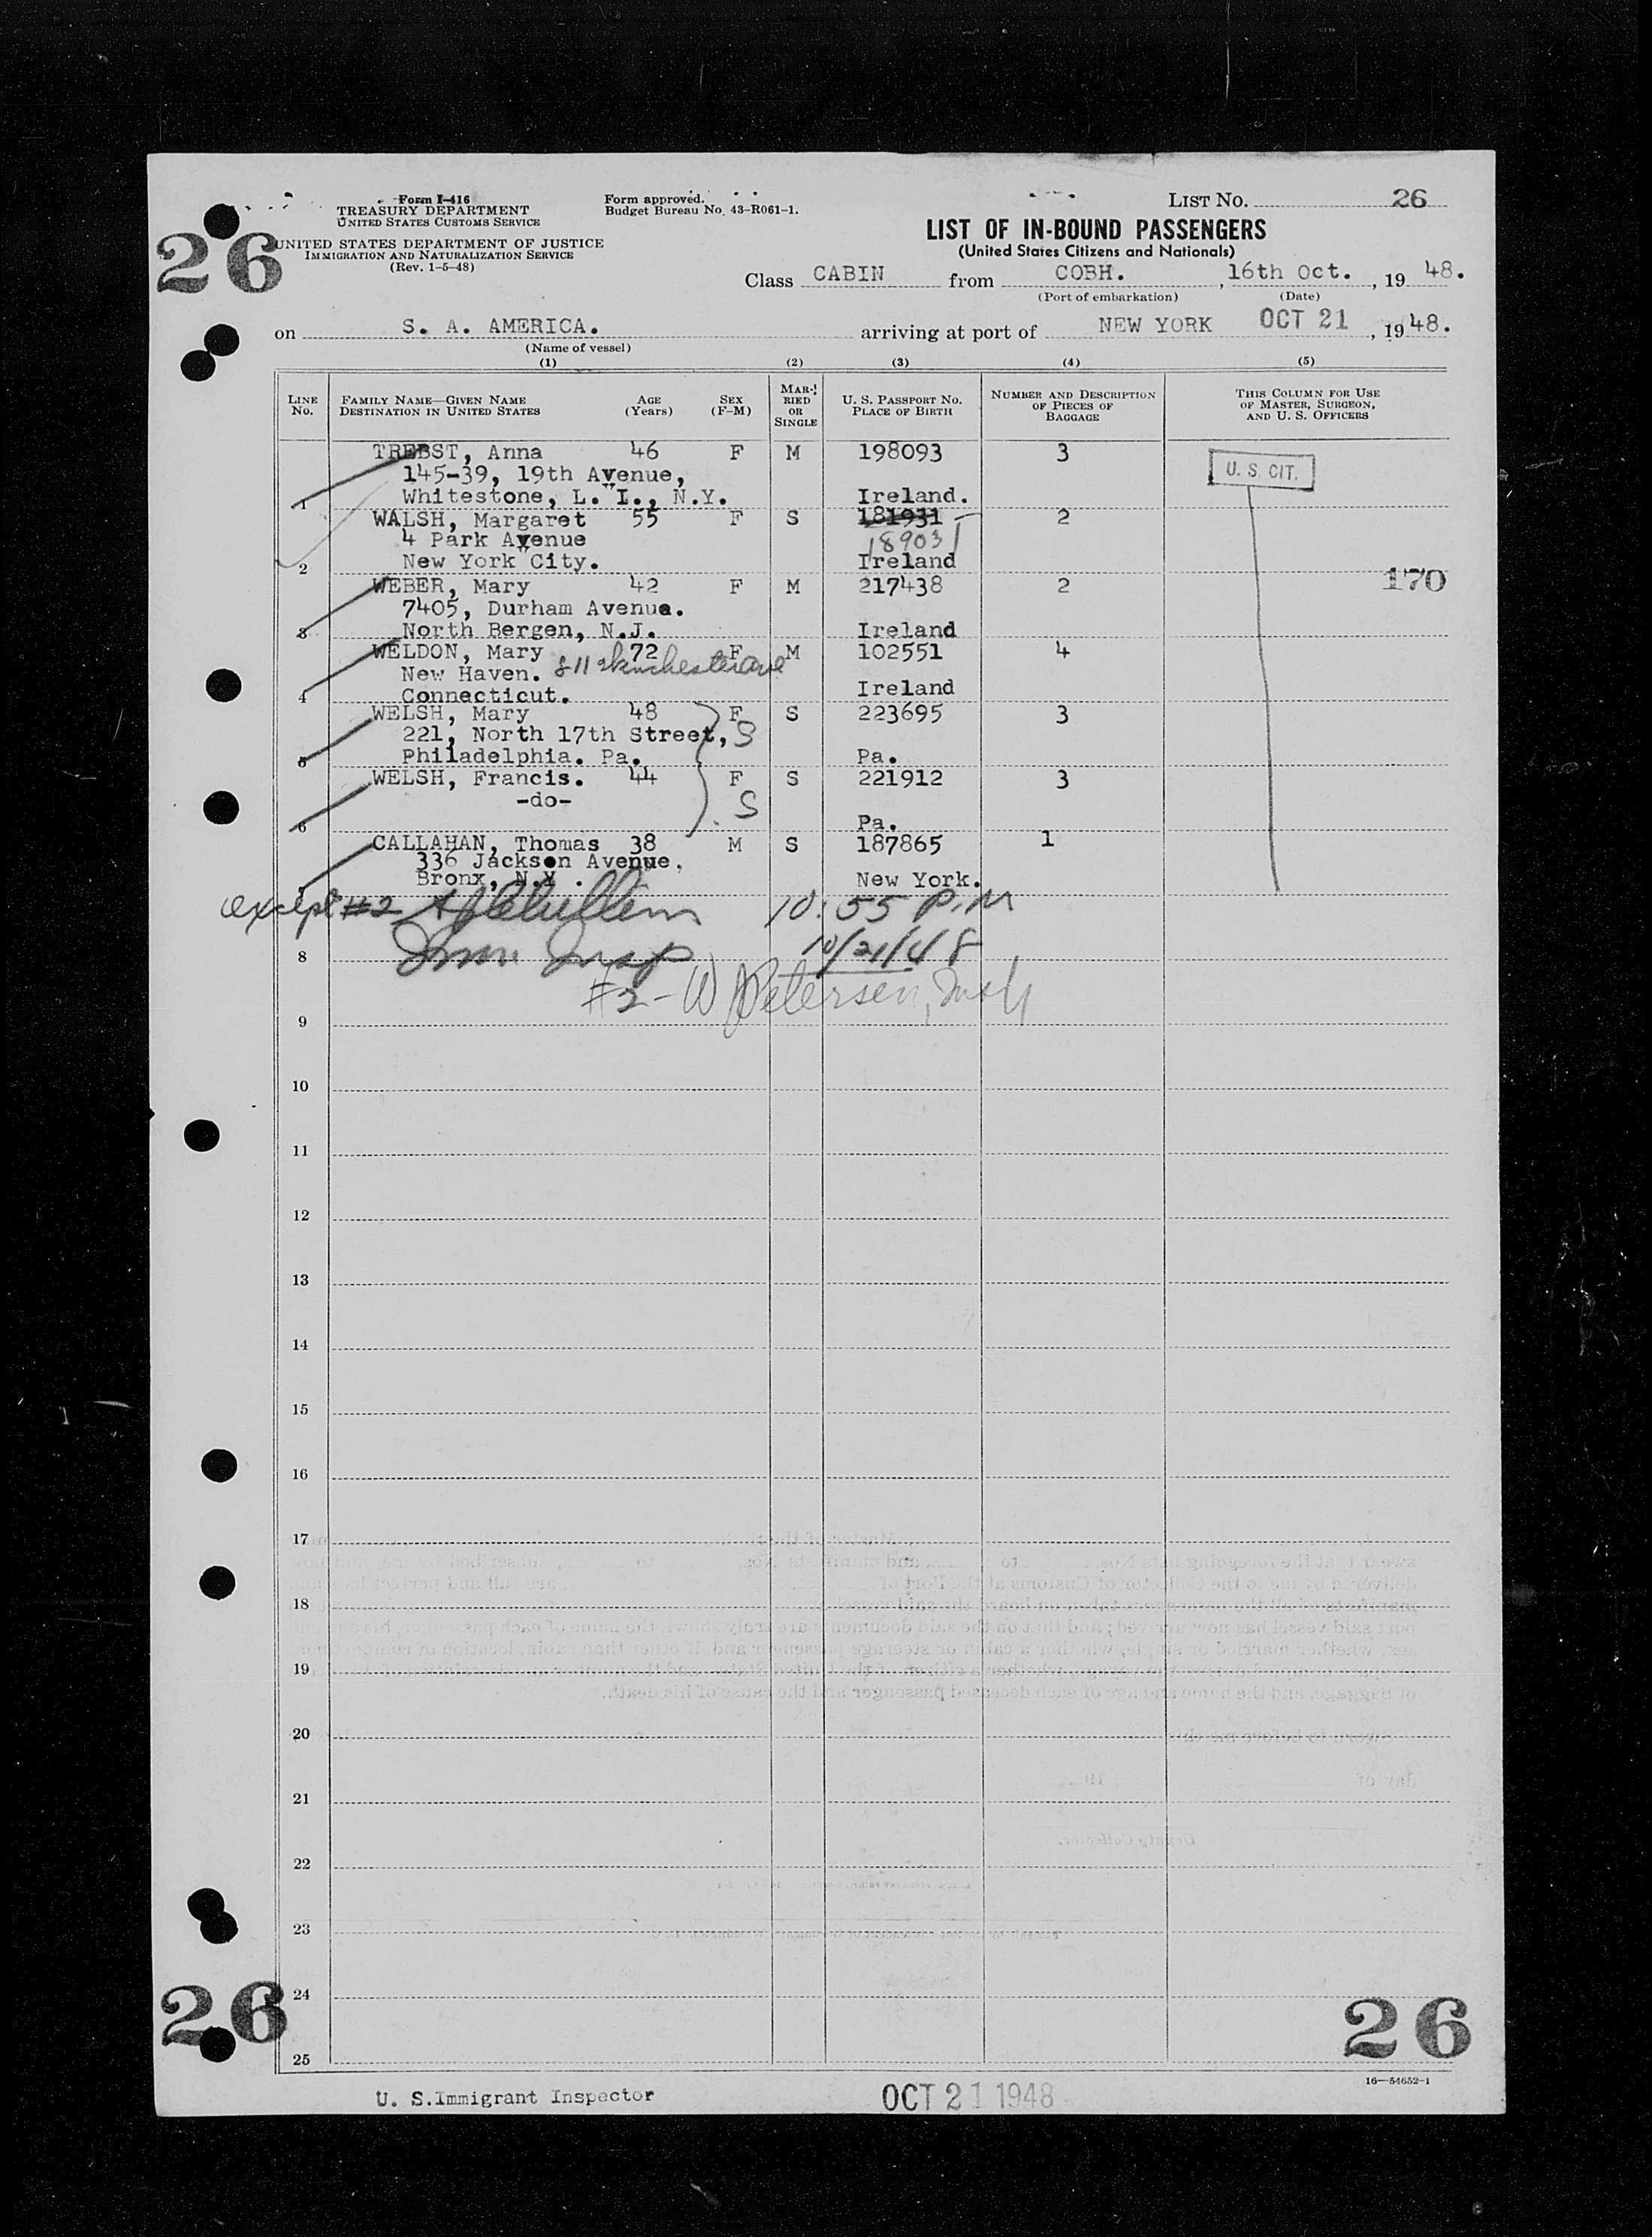 Form I-416
TREASURY DEPARTMENT
UNITED STATES CUSTOMS SERVICE
UNITED STATES DEPARTMENT OF JUSTICE
IMMIGRATION AND NATURALIZATION SERVICE
(Rev. 1-5-48)
26
Form approved.
Budget Bureau No. 43-R061-1.
LIST No. 26
LIST OF IN-BOUND PASSENGERS
(United States Citizens and Nationals)
Class CABIN from COBH. , 16th Oct. , 19 48.
(Port of embarkation) (Date)
on S. A. AMERICA. arriving at port of NEW YORK OCT 21 , 19 48.
(Name of vessel)
(1) (2) (3) (4) (5)
LINE No. FAMILY NAME—GIVEN NAME DESTINATION IN UNITED STATES AGE (Years) SEX (F-M) MARRIED OR SINGLE U. S. PASSPORT No. PLACE OF BIRTH NUMBER AND DESCRIPTION OF PIECES OF BAGGAGE THIS COLUMN FOR USE OF MASTER, SURGEON, AND U. S. OFFICERS
TREBST, Anna 46 F M 198093 3
145-39, 19th Avenue, U. S. CIT.
1 Whitestone, L. I., N.Y. Ireland.
WALSH, Margaret 55 F S 181931 2
4 Park Avenue 189031
2 New York City. Ireland
WEBER, Mary 42 F M 217438 2 170
7405, Durham Avenue.
3 North Bergen, N.J. Ireland
WELDON, Mary 72 F M 102551 4
New Haven. 811 Winchester Ave
4 Connecticut. Ireland
WELSH, Mary 48 F S 223695 3
221, North 17th Street, S
5 Philadelphia. Pa. Pa.
WELSH, Francis. 44 F S 221912 3
-do- S
6 Pa.
CALLAHAN, Thomas 38 M S 187865 1
336 Jackson Avenue.
Bronx, N.Y . New York.
except #2 10:55 P.M
8 Imm Insp 10/21/48
#2 - W Petersen, Insp
9
10
11
12
13
14
15
16
17
18
19
20
21
22
23
24
25
26
26
16—54652-1
U. S.Immigrant Inspector OCT 21 1948